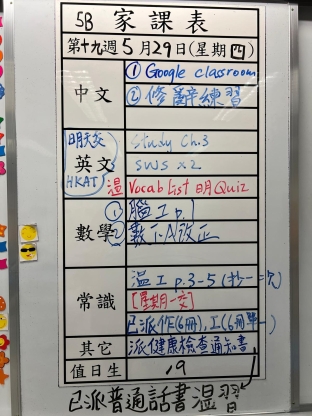 5B 家課表
第十九週5月29日(星期四)
中文
① Google classroom
② 修辭練習
明天交
HKAT
英文
Study Ch.3
SWS x2
溫 Vocab List 明Quiz
數學
① 腦工 p.1
② 數下A改正
常識
溫工 p.3-5 (抄一次)
[星期一交]
已派作(6冊),工(6冊單一)
其它
派健康檢查通知書
值日生
19
已派普通話書溫習